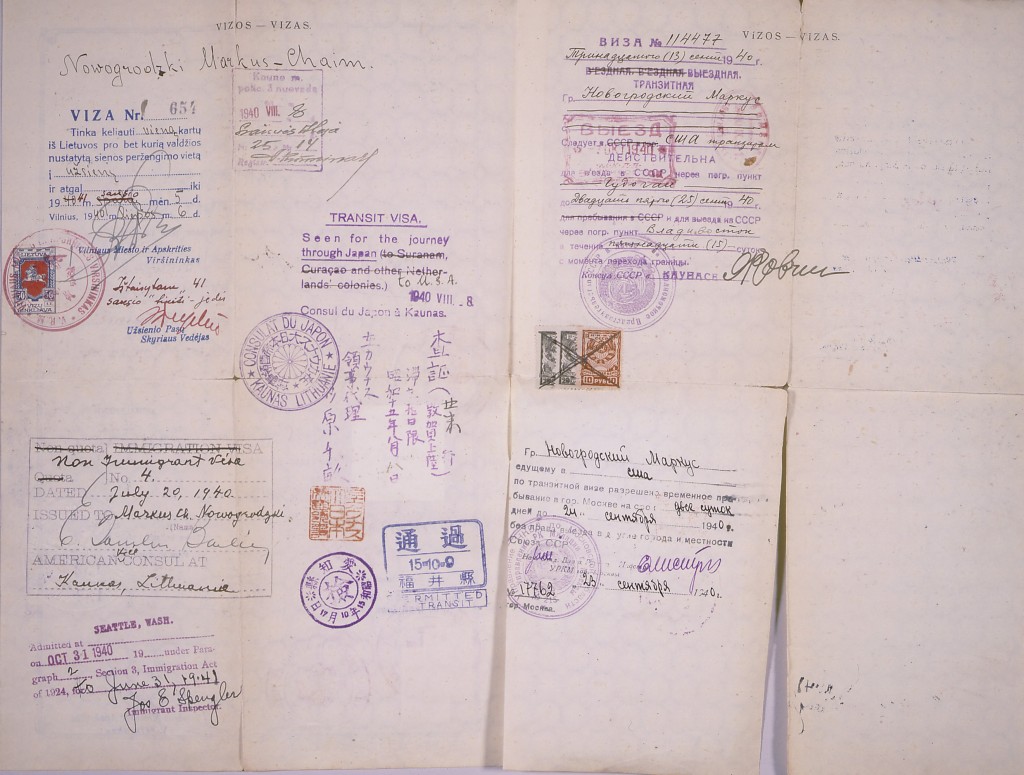 VIZOS — VIZAS.
Nowogrodzki Markus-Chaim.
VIZA Nr. 654
Tinka keliauti vieną kartu
iš Lietuvos pro bet kurią valdžios
nustatytą sienos perėjimo vietą
į užsienį
ir atgal iki
19 41 m. sausio mėn. 5 d.
Vilnius, 1940 m. d.
Vilniaus Miesto ir Apskrities
Viršininkas
41
sausio
Užsienio Pasų
Skyriaus Vedėjas
Kauno m.
polic. 3 nuovada
1940 VIII. 8
25 14
TRANSIT VISA.
Seen for the journey
through Japan (to Suranam,
Curaçao and other Nether-
lands' colonies.) to U.S.A.
1940 VIII. 8
Consul du Japon à Kaunas.
CONSULAT DU JAPON
KAUNAS LITHUANIE
査証
(敦賀上陸)
昭和十五年八月八日
カウナス
領事代理
Non quota IMMIGRATION VISA
Non Immigrant Visa
Quota No. 4.
DATED July 20, 1940.
ISSUED TO Markus Ch. Nowogrodzki.
(Name)
Vice
AMERICAN CONSUL AT
Kaunas, Lithuania
SEATTLE, WASH.
Admitted at
on OCT 31 1940 19 under Para-
graph 2, Section 3, Immigration Act
of 1924, to June 31, 1941
Jos E. Spengler
Immigrant Inspector.
愛知
通過
15-10-9
福井縣
PERMITTED
TRANSIT
VIZOS — VIZAS.
ВИЗА № 114477
Тринадцатого (13) сент 1940 г.
ВЪЕЗДНАЯ, ВЪЕЗДНАЯ ВЫЕЗДНАЯ.
ТРАНЗИТНАЯ
Гр. Новогродский Маркус
ВЫЕЗД
Следует в СССР США транзитом
ДЕЙСТВИТЕЛЬНА
для въезда в СССР через погр. пункт
Гудогай
до Двадцать пятого (25) сент 1940 г.
для пребывания в СССР и для выезда из СССР
через погр. пункт Владивосток
в течении пятнадцати (15) суток
с момента перехода границы.
Консул СССР в КАУНАСЕ
10 РУБ
Гр. Новогродский Маркус
едущему в США
по транзитной визе разрешено временное пре
бывание в гор. Москве на срок двое суток
дней до 24 сентября 1940 г.
без права в'езда в другие города и местности
Союза ССР
№ 17762 23 сентября 1940.
гор. Москва.